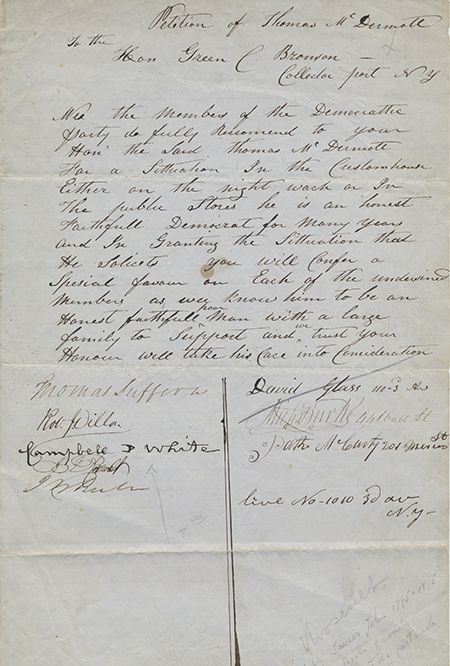 Petition of Thomas Mc Dermott
To the
Hon Green C Bronson —
Collector port N Y
We the Members of the Democratic
party do fully Recomend to your
Hon' the Said Thomas Mc Dermott
For a Situation In the Customhouse
Either on the night wach or In
The public Stores he is an honest
Faithfull Democrat for Many Years
and In Granting the Sittuation that
He Solicets you will Confer a
Spesial favour on Each of the undersined
Members as wey know him to be an
Honest faithfull poor Man with a large
family to Support and we trust your
Honour will take his Case into Consideration
Thomas Suffern
Rob. J Dillon
Campbell P White
David Glass 110-3 Av
St
Patk McCarty 201 St
live No-1010 3d av
N.Y-
Roosevelt
James John 1795-1875